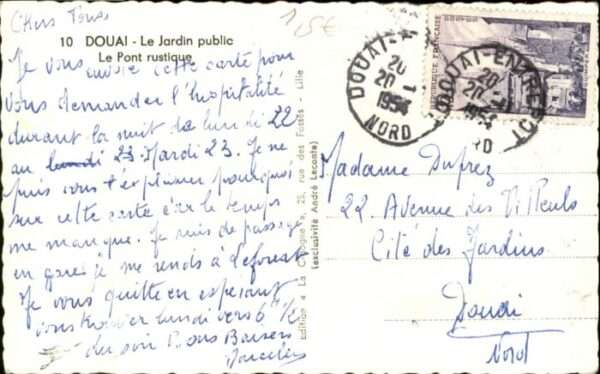 Chers Tous
1,5€
10 DOUAI - Le Jardin public
Le Pont rustique
Je vous envoie cette carte pour
vous demander l'hospitalité
durant la nuit de lundi 22
au lundi 23 Mardi 23. Je ne
puis vous expliquer pourquoi
sur cette carte car le temps
me manque. Je suis de passage
en gare, je me rends à Leforest
Je vous quitte en espérant
vous lundi vers 6h 1/2
du soir Bons Baisers
Edition « La Cigogne », 25, rue des Fossés - Lille
(exclusivité André Leconte)
REPUBLIQUE FRANÇAISE
POSTES
DOUAI
20
20 -1
1954
NORD
DOUAI-ENTREPOT
20
20 -1
1954
NORD
Madame Duprez
22 Avenue des Tilleuls
Cité des Jardins
Douai
Nord